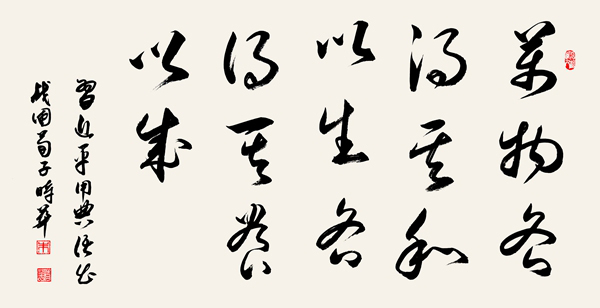 萬物各
得其和
以生各
得其養
以成
習近平用典语出
战国荀子時